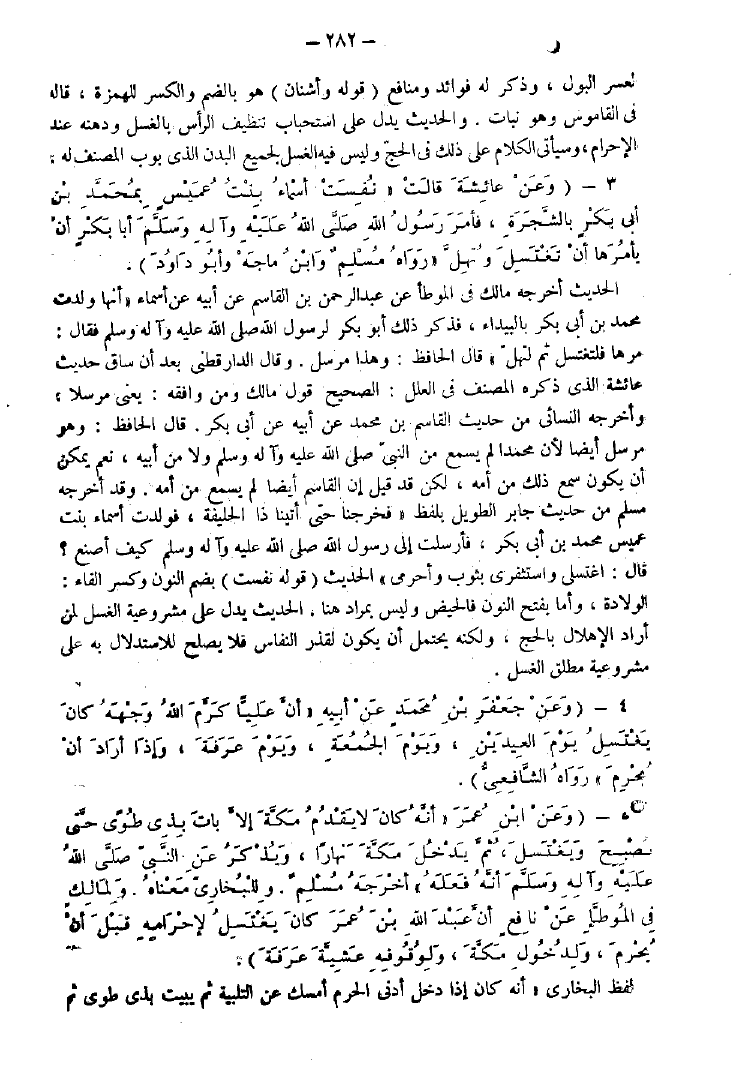 – ٢٨٢ –
لعسر البول ، وذكر له فوائد ومنافع ( قوله وأشنان ) هو بالضم والكسر للهمزة ، قاله
فى القاموس وهو نبات . والحديث يدل على استحباب تنظيف الرأس بالغسل ودهنه عند
الإحرام ، وسيأتى الكلام على ذلك فى الحجّ وليس فيه الغسل لجميع البدن الذى بوب المصنف له .
٣ – ( وَعَنْ عائِشَةَ قالَتْ « نُفِسَتْ أسْماءُ بِنْتُ عُمَيْسٍ بِمُحَمَّدِ بْنِ
أبى بَكْرٍ بالشَّجَرَةِ ، فأمَرَ رَسُولُ اللهِ صَلَّى اللهُ عَلَيْهِ وآلِهِ وَسَلَّمَ أبا بَكْرٍ أنْ
يأمُرَها أنْ تَغْتَسِلَ وَتُهِلَّ » رَوَاهُ مُسْلِمٌ وَابْنُ ماجَهْ وأبُو دَاوُدَ ) .
الحديث أخرجه مالك فى الموطأ عن عبدالرحمن بن القاسم عن أبيه عن أسماء « أنها ولدت
محمد بن أبى بكر بالبيداء ، فذكر ذلك أبو بكر لرسول الله صلى الله عليه وآله وسلم فقال :
مرها فلتغتسل ثم لتهلّ » قال الحافظ : وهذا مرسل . وقال الدارقطنى بعد أن ساق حديث
عائشة الذى ذكره المصنف فى العلل : الصحيح قول مالك ومن وافقه : يعنى مرسلا ،
وأخرجه النسائى من حديث القاسم بن محمد عن أبيه عن أبى بكر . قال الحافظ : وهو
مرسل أيضا لأن محمدا لم يسمع من النبىّ صلى الله عليه وآله وسلم ولا من أبيه ، نعم يمكن
أن يكون سمع ذلك من أمه ، لكن قد قيل إن القاسم أيضا لم يسمع من أمه . وقد أخرجه
مسلم من حديث جابر الطويل بلفظ « فخرجنا حتى أتينا ذا الحليفة ، فولدت أسماء بنت
عميس محمد بن أبى بكر ، فأرسلت إلى رسول الله صلى الله عليه وآله وسلم كيف أصنع ؟
قال : اغتسلى واستثفرى بثوب وأحرمى » الحديث ( قوله نفست ) بضم النون وكسر الفاء :
الولادة ، وأما بفتح النون فالحيض وليس بمراد هنا . الحديث يدل على مشروعية الغسل لمن
أراد الإهلال بالحج ، ولكنه يحتمل أن يكون لقذر النفاس فلا يصلح للاستدلال به على
مشروعية مطلق الغسل .
٤ – ( وَعَنْ جَعْفَرِ بْنِ مُحَمَّدٍ عَنْ أبِيهِ « أنَّ عَلِيًّا كَرَّمَ اللهُ وَجْهَهُ كانَ
يَغْتَسِلُ يَوْمَ العِيدَيْنِ ، وَيَوْمَ الجُمُعَةِ ، وَيَوْمَ عَرَفَةَ ، وَإذَا أرَادَ أنْ
يُحْرِمَ » رَوَاهُ الشَّافِعِىُّ ) .
٥ – ( وَعَنْ ابْنِ عُمَرَ « أنَّهُ كانَ لايَقْدُمُ مَكَّةَ إلاَّ باتَ بِذِى طُوًى حتَّى
يُصْبِحَ وَيَغْتَسِلَ ، ثُمَّ يَدْخُلَ مَكَّةَ نَهارًا ، وَيَذْكُرُ عَنِ النَّبِىِّ صَلَّى اللهُ
عَلَيْهِ وآلِهِ وَسَلَّمَ أنَّهُ فَعَلَهُ » أخْرَجَهُ مُسْلِمٌ . وللْبُخارِىِّ مَعْناهُ . وَلِمَالِكٍ
فِى المُوَطَّإ عَنْ نافِعٍ أنَّ عَبْدَ اللهِ بْنَ عُمَرَ كانَ يَغْتَسِلُ لإحْرَامِهِ قَبْلَ أنْ
يُحْرِمَ ، وَلِدُخُولِ مَكَّةَ ، وَلِوُقُوفِهِ عَشِيَّةَ عَرَفَةَ ) .
لفظ البخارى « أنه كان إذا دخل أدنى الحرم أمسك عن التلبية ثم يبيت بذى طوى ثم